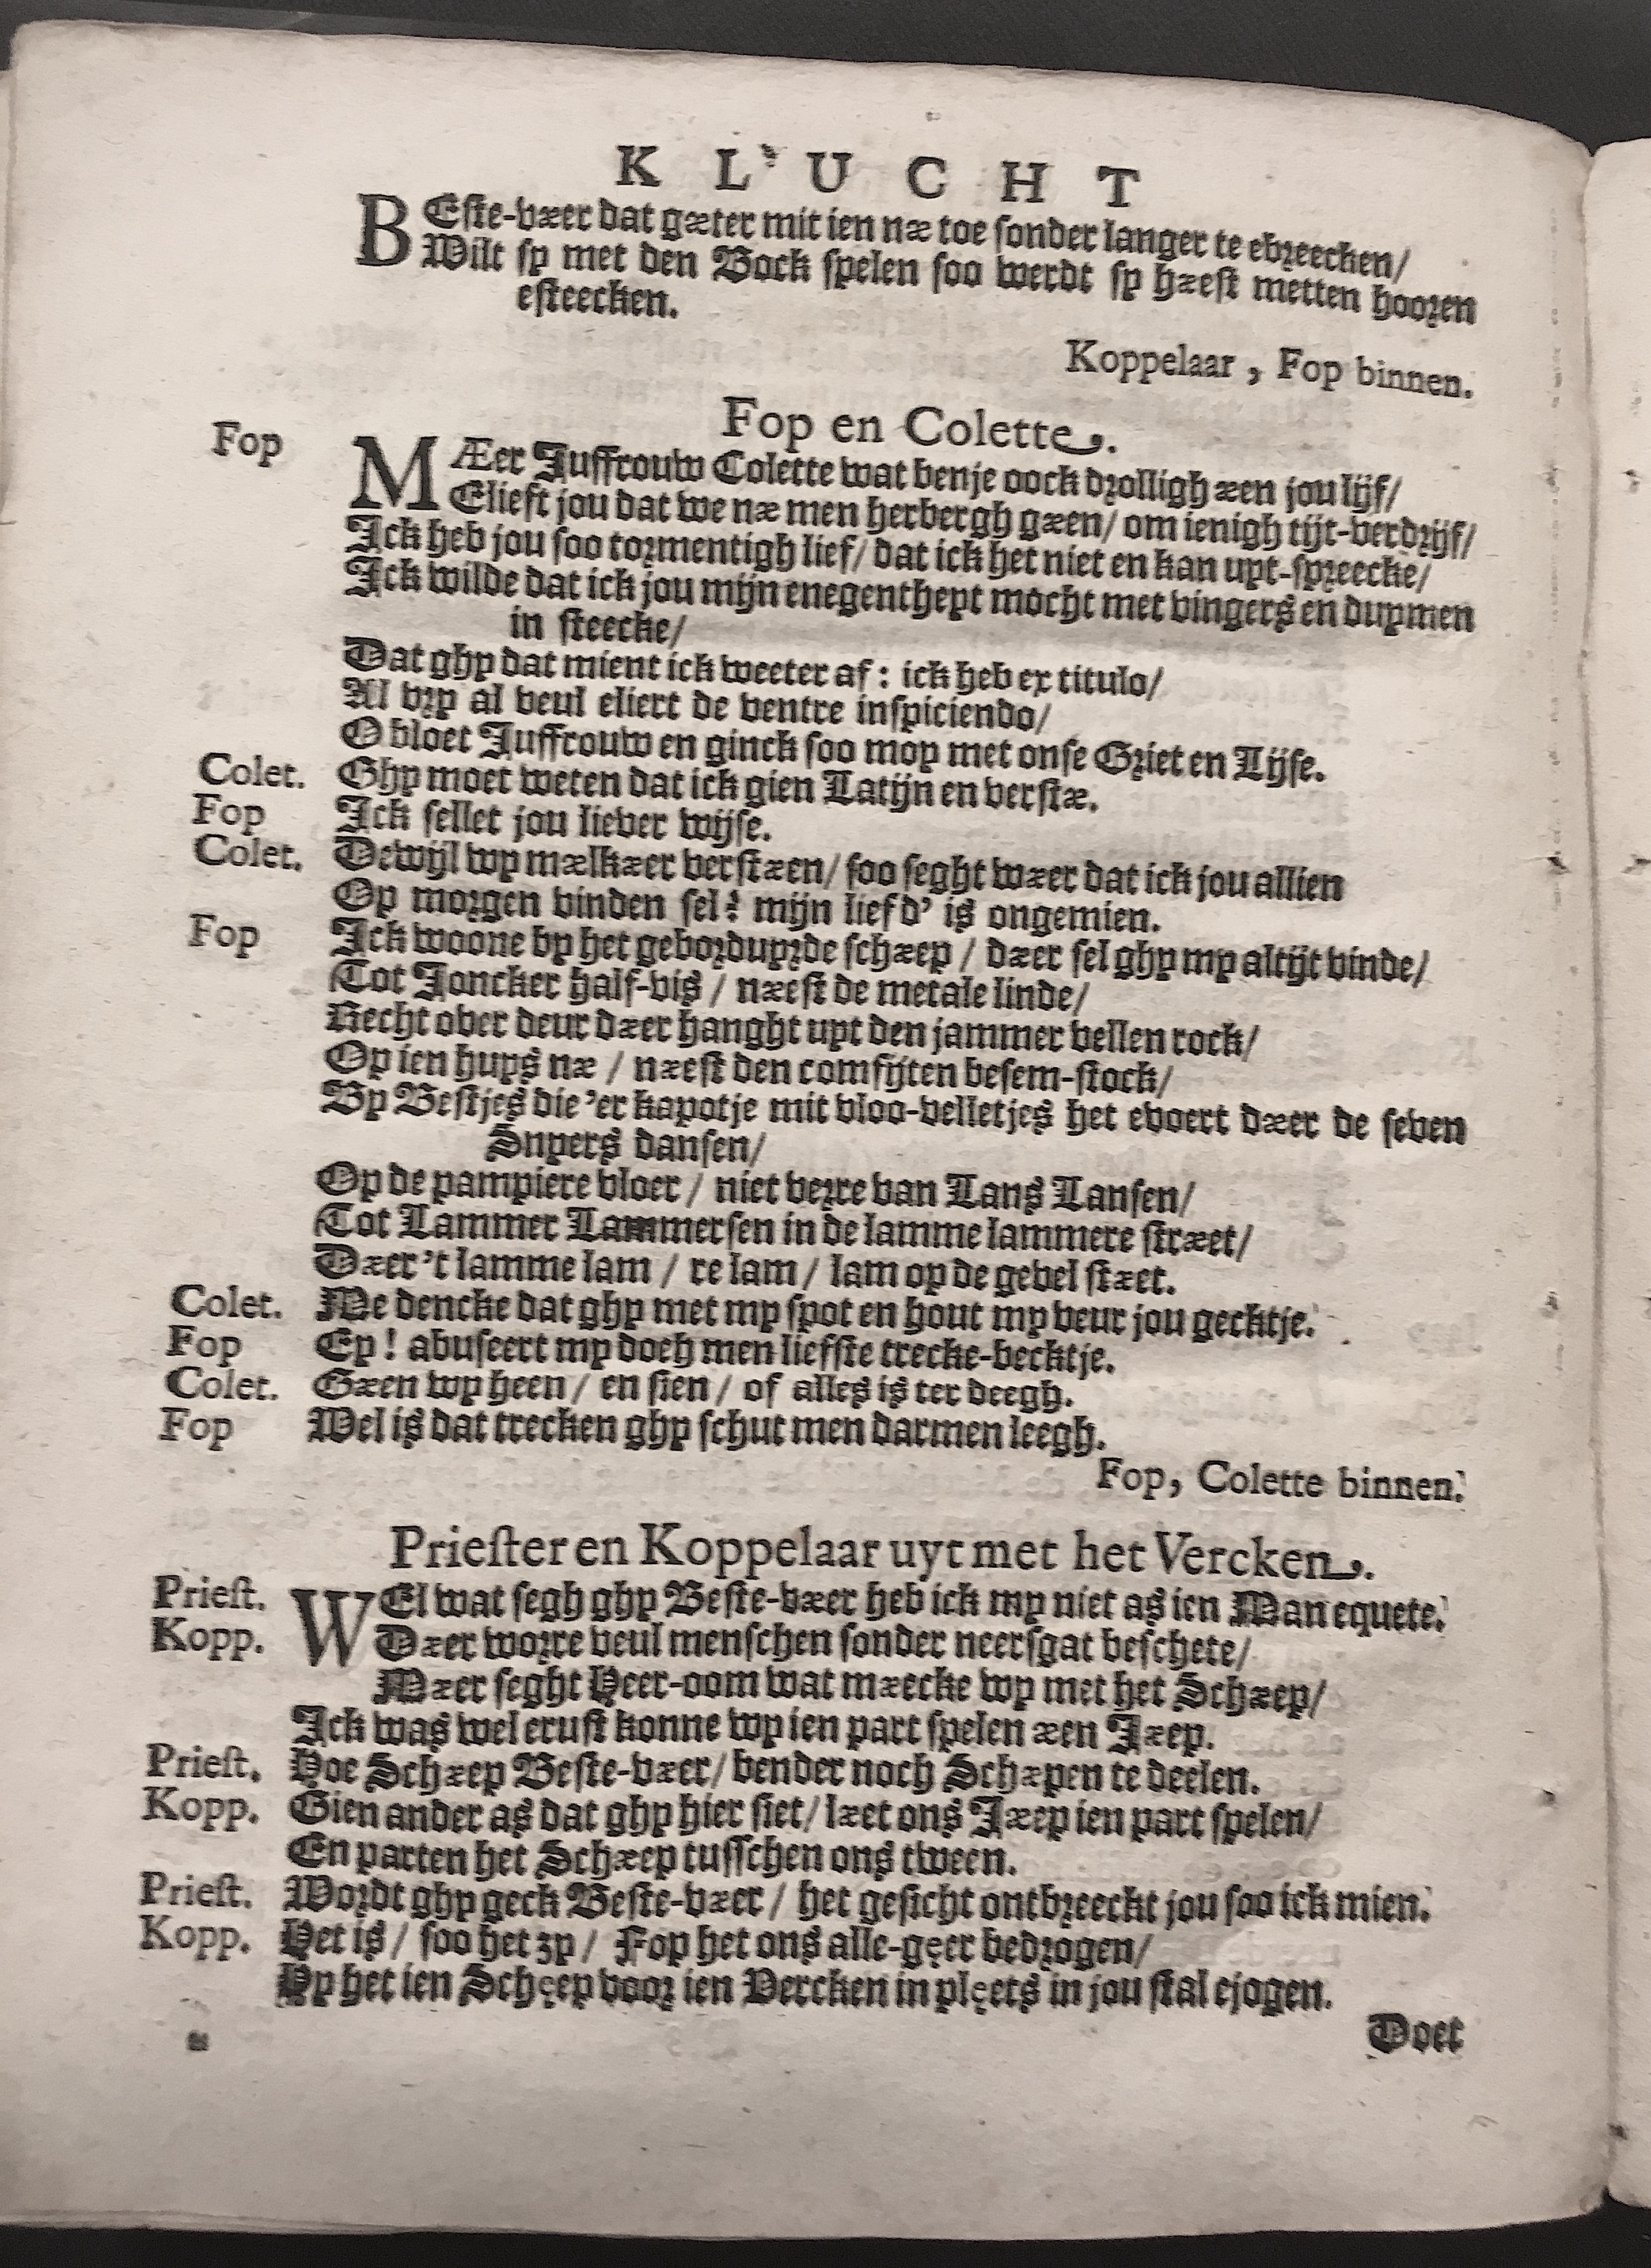 KLUCHT
BEste-væer dat gæter mit ien næ toe sonder langer te ebreecken/
Wilt sy met den Bock spelen soo werdt sy hæest metten hooren
esteecken.
Koppelaar, Fop binnen.
Fop en Colette.
Fop MÆer Juffrouw Colette wat benje oock drolligh æen jou lijf/
Elieft jou dat we næ men herbergh gæen/ om ienigh tijt-verdrijf/
Ick heb jou soo tormentigh lief/ dat ick het niet en kan uyt-spreecke/
Ick wilde dat ick jou mijn enegentheyt mocht met vingers en duymen
in steecke/
Dat ghy dat mient ick weeter af: ick heb ex titulo/
Al vry al veul eliert de ventre inspiciendo/
O bloet Juffrouw en ginck soo moy met onse Griet en Lijse.
Colet. Ghy moet weten dat ick gien Latijn en verstæ.
Fop Ick sellet jou liever wijse.
Colet. Dewijl wy mælkæer verstæen/ soo seght wæer dat ick jou allien
Op morgen vinden sel? mijn liefd' is ongemien.
Fop Ick woone by het geborduyrde schæep / dæer sel ghy my altijt vinde/
Tot Joncker half-vis / næest de metale linde/
Recht over deur dæer hanght uyt den jammer vellen rock/
Op ien huys næ / næest den comfijten besem-stock/
By Bestjes die 'er kapotje mit vloo-velletjes het evoert dæer de seven
Snyers dansen/
Op de pampiere vloer / niet verre van Lans Lansen/
Tot Lammer Lammersen in de lamme lammere stræet/
Dæer 't lamme lam / re lam / lam op de gevel stæet.
Colet. Me dencke dat ghy met my spot en hout my veur jou gecktje.
Fop Ey! abuseert my doch men liefste trecke-becktje.
Colet. Gæen wy heen / en sien / of alles is ter deegh.
Fop Wel is dat trecken ghy schut men darmen leegh.
Fop, Colette binnen.
Priester en Koppelaar uyt met het Vercken.
Priest. WEl wat segh ghy Beste-væer heb ick my niet as ien Man equete.
Kopp. Dæer worre veul menschen sonder neersgat beschete/
Mæer seght Heer-oom wat mæecke wy met het Schæep/
Ick was wel erust konne wy ien part spelen æen Jæep.
Priest. Hoe Schæep Beste-væer/ bender noch Schæpen te deelen.
Kopp. Gien ander as dat ghy hier siet/ læet ons Jæep ien part spelen/
En parten het Schæep tusschen ons tween.
Priest. Wordt ghy geck Beste-væer / het gesicht ontbreeckt jou soo ick mien.
Kopp. Het is / soo het zy / Fop het ons alle-gęer bedrogen/
Hy het ien Schęep voor ien Vercken in plęets in jou stal ejogen.
Doet